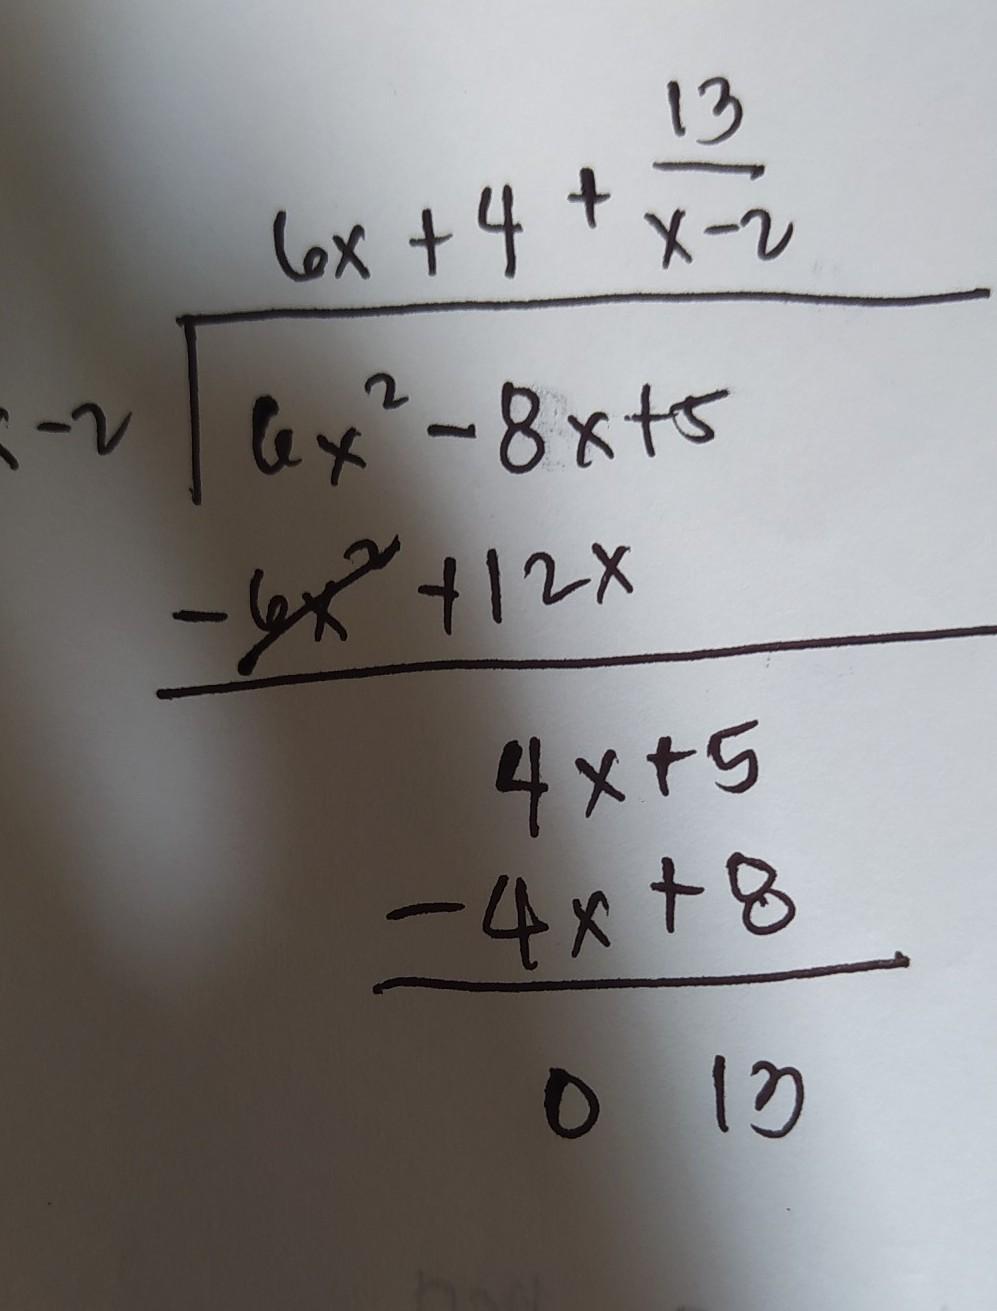 13
6x + 4 + x-2
x-2 6x² -8x+5
-6x² +12x
4x+5
-4x+8
0 13